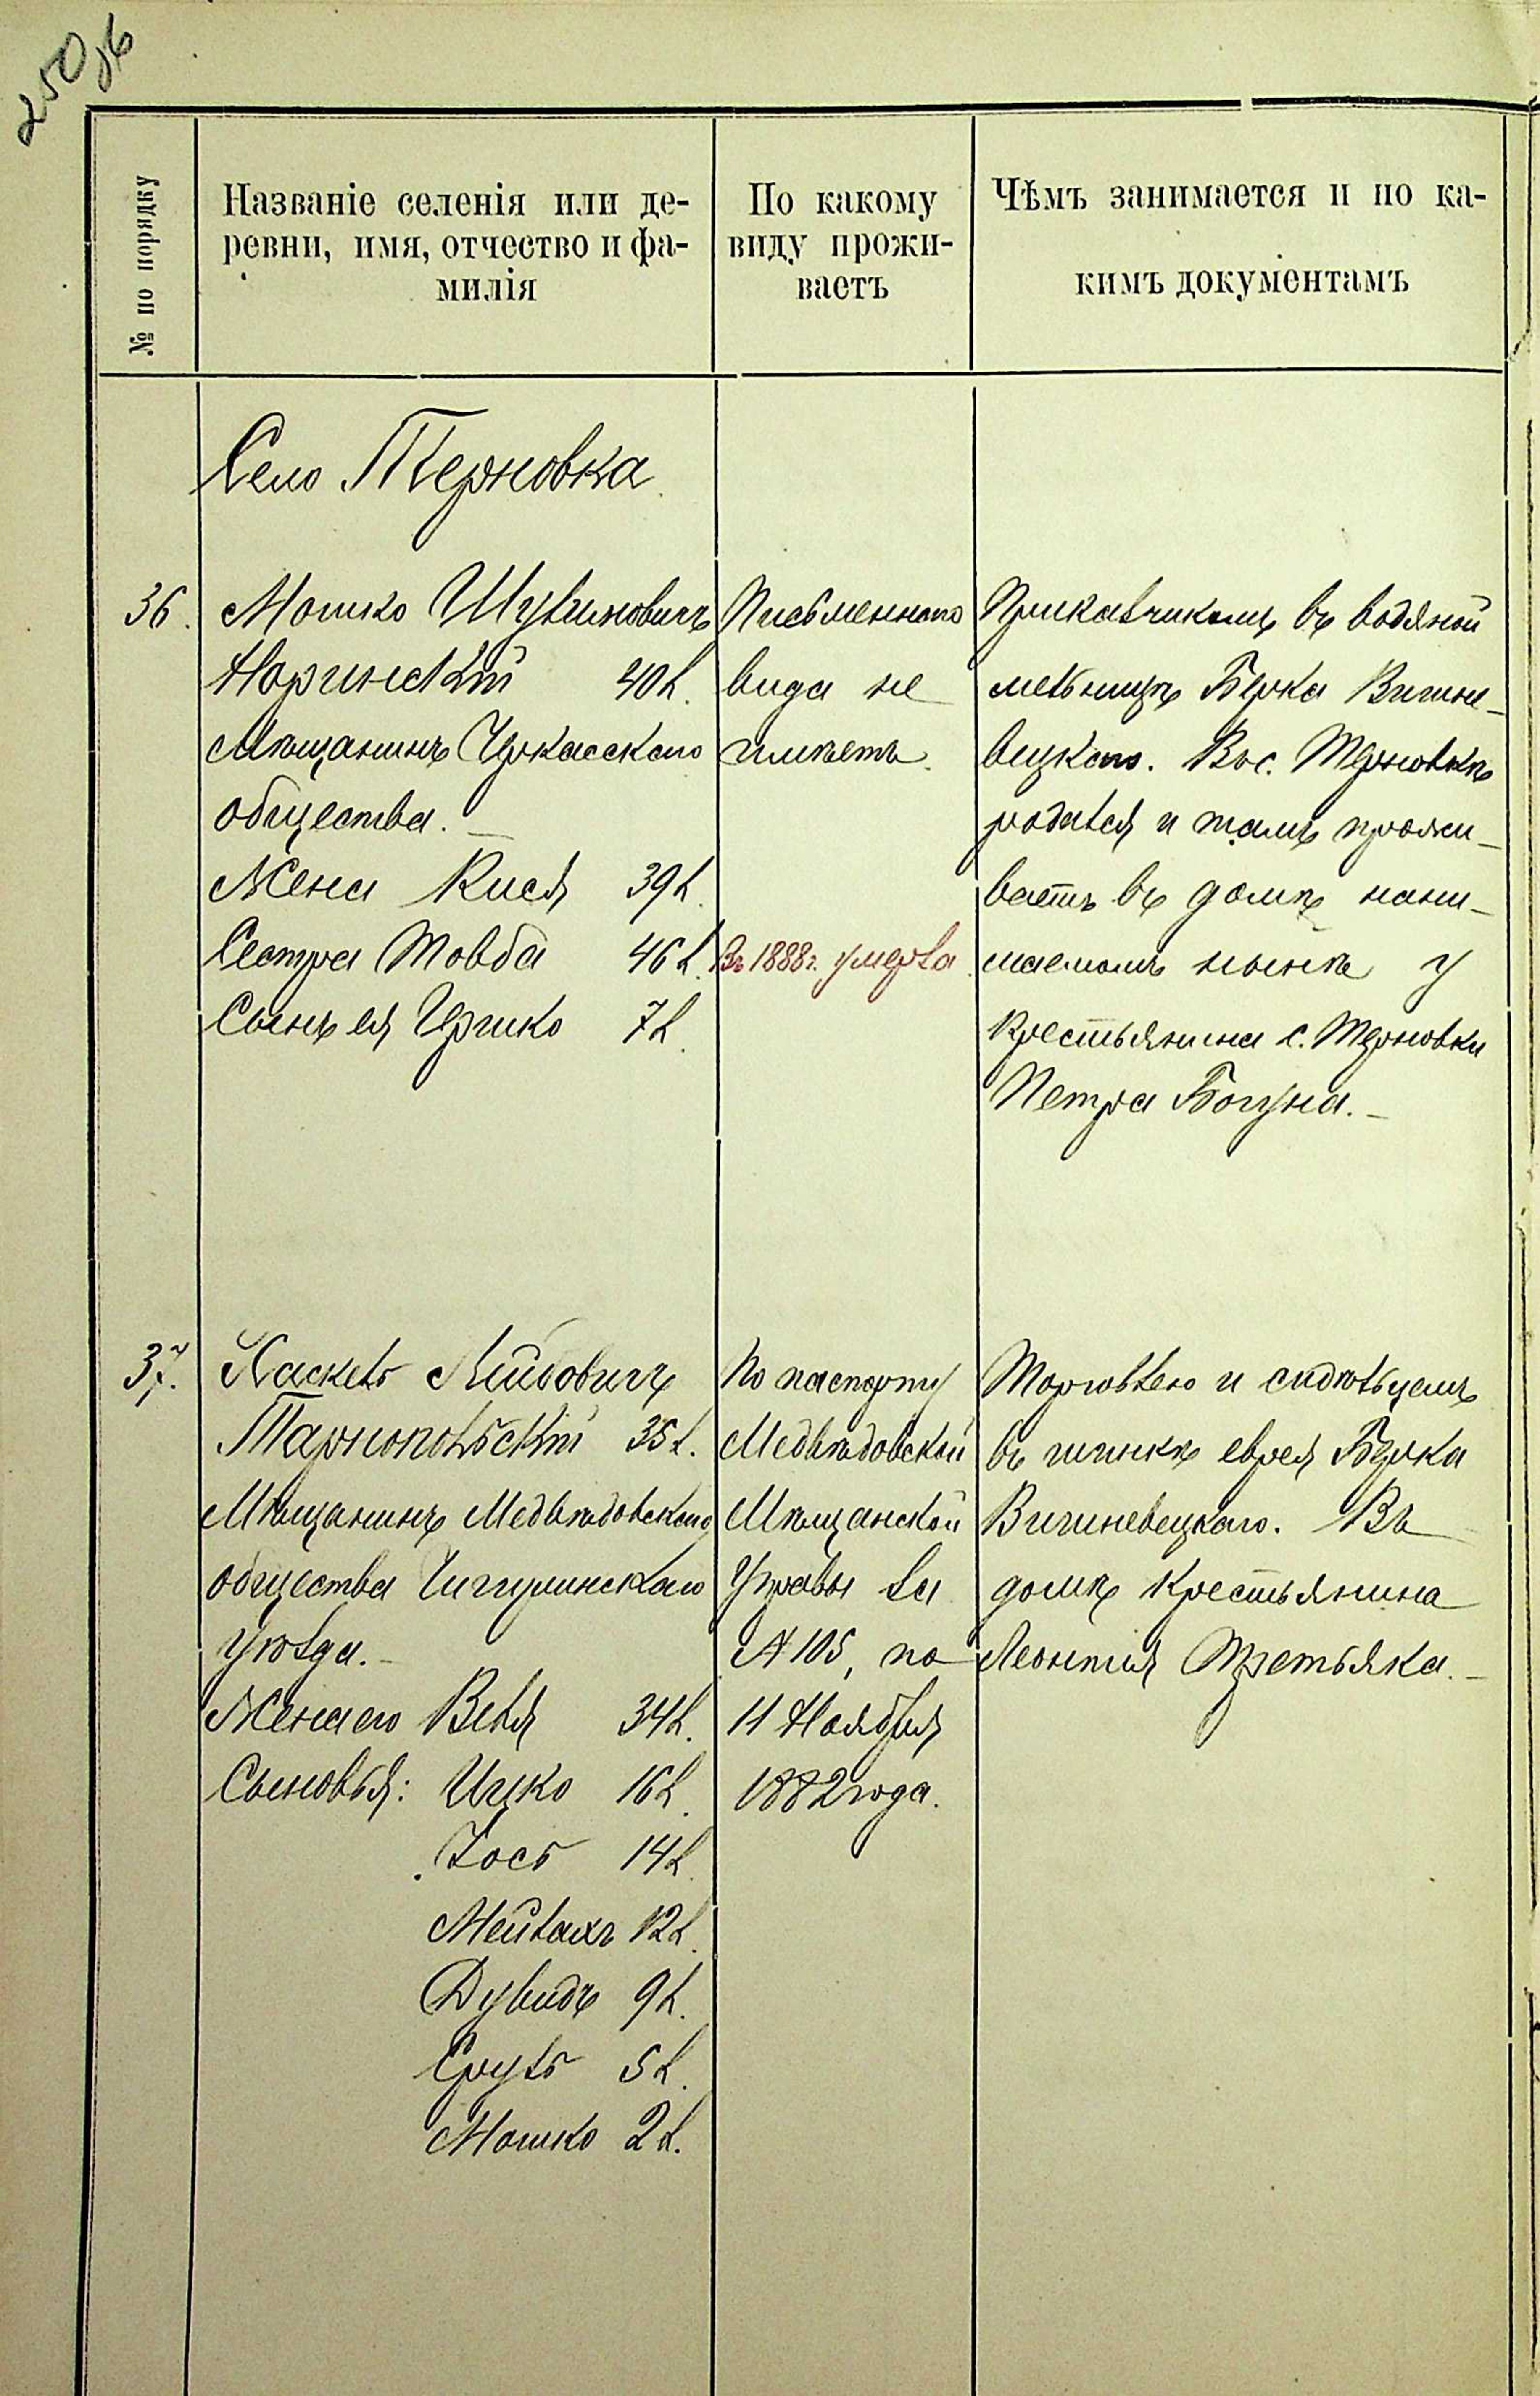 250об
№ по порядку
Названіе селенія или де-
ревни, имя, отчество и фа-
милія
По какому
виду прожи-
ваетъ
Чѣмъ занимается и по ка-
кимъ документамъ
Село Терновка
36.
Мошко Шулимовичъ
Норинскій 40 л.
Мѣщанинъ Черкасскаго
общества.
Жена Кися 39 л.
Сестра Товба 46 л.
Сынъ ея Гершко 7 л.
Письменного
вида не
имѣетъ.
Въ 1888 г. умерла.
Приказчикомъ въ водяной
мельницѣ Берка Вишне-
вецкаго. Въ с. Терновкѣ
родился и тамъ прожи-
ваетъ въ домѣ нани-
маемомъ нынѣ у
крестьянина с. Терновки
Петра Богуна.
37.
Хаскель Лейбовичъ
Тарнопольскій 35 л.
Мѣщанинъ Медвѣдовскаго
общества Чигиринскаго
уѣзда.
Жена его Веля 34 л.
Сыновья: Ицко 16 л.
Іось 14 л.
Мейлахъ 12 л.
Дувидъ 9 л.
Сруль 5 л.
Мошко 2 л.
По паспорту
Медвѣдовской
Мѣщанской
Управы за
№ 105, по
11 Ноября
1882 года.
Торговлею и сидѣльцемъ
въ шинкѣ еврея Берка
Вишневецкаго. Въ
домѣ крестьянина
Леонтія Третьяка.